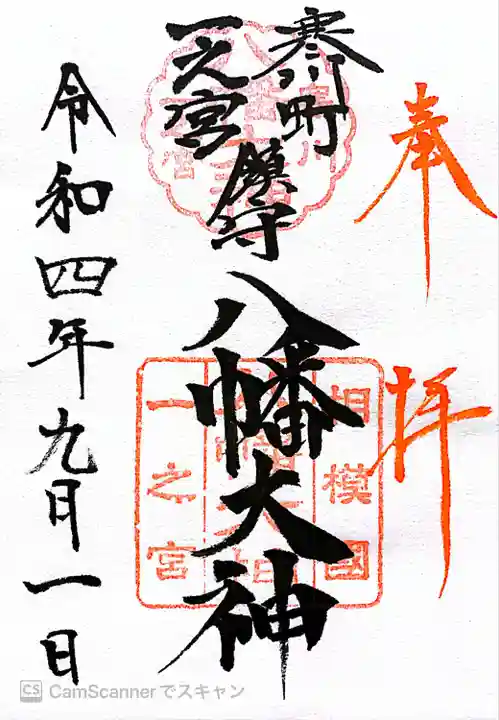 奉拝
寒川町
一之宮
鎮守
八幡大神
相模國
八幡大神
一之宮
令和四年九月一日
CS CamScannerでスキャン